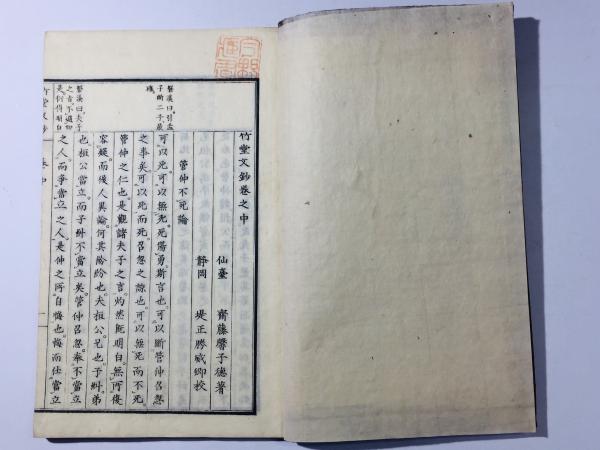 竹堂文鈔卷之中
仙臺　齋藤馨子德著
靜岡　堤正勝威卿校
管仲不死論
可以死可以無死死傷勇斯言也可以斷管仲召忽
之事矣可以死而死召忽之諒也可以無死而不死
管仲之仁也是觀諸夫子之言灼然既明白無所復
容疑而後人異論何其紛紛也夫桓公兄也子糾弟
也桓公當立而子糾不當立矣管仲召忽奉不當立
之人而爭當立之人是仲之所自悔也悔而仕當立
磐溪曰引孟
子斷二子嚴
磐溪曰夫子
之言不過如
是何等明白
竹堂文鈔　卷中　一